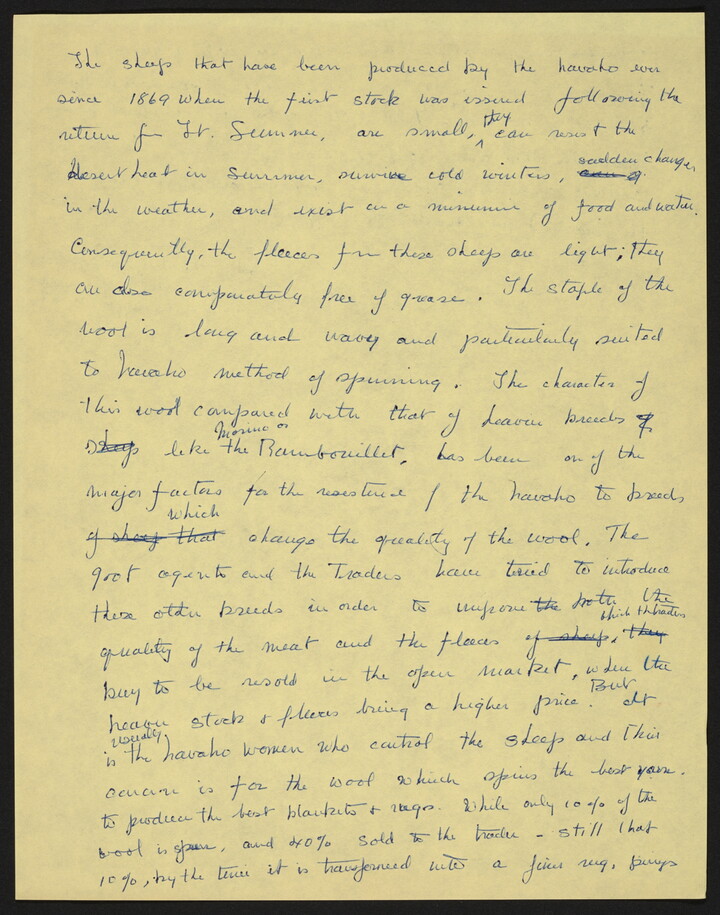 The sheep that have been produced by the Navaho ever
since 1869 when the first stock was issued following the
return from Ft. Sumner, are small, they can resist the
desert heat in summer, survive cold winters, sudden changes
in the weather, and exist on a minimum of food and water.
Consequently, the fleeces from these sheep are light; they
are also comparatively free of grease. The staple of the
wool is long and wavy and particularly suited
to Navaho method of spinning. The character of
this wool compared with that of heavier breeds of
sheep like the Merino or Rambouillet, has been one of the
major factors for the resistence of the Navaho to breeds
of sheep that which change the quality of the wool. The
govt agents and the Traders have tried to introduce
these other breeds in order to improve the both the
quality of the meat and the fleeces of sheep, they which the traders
buy to be resold in the open market, when the
heavier stock & fleeces bring a higher price. But it
is usually the Navaho women who control the sheep and their
concern is for the wool which spins the best yarn.
to produce the best blankets & rugs. While only 10% of the
wool is spun, and 40% sold to the trader – still that
10%, by the time it is transformed into a fine rug, brings